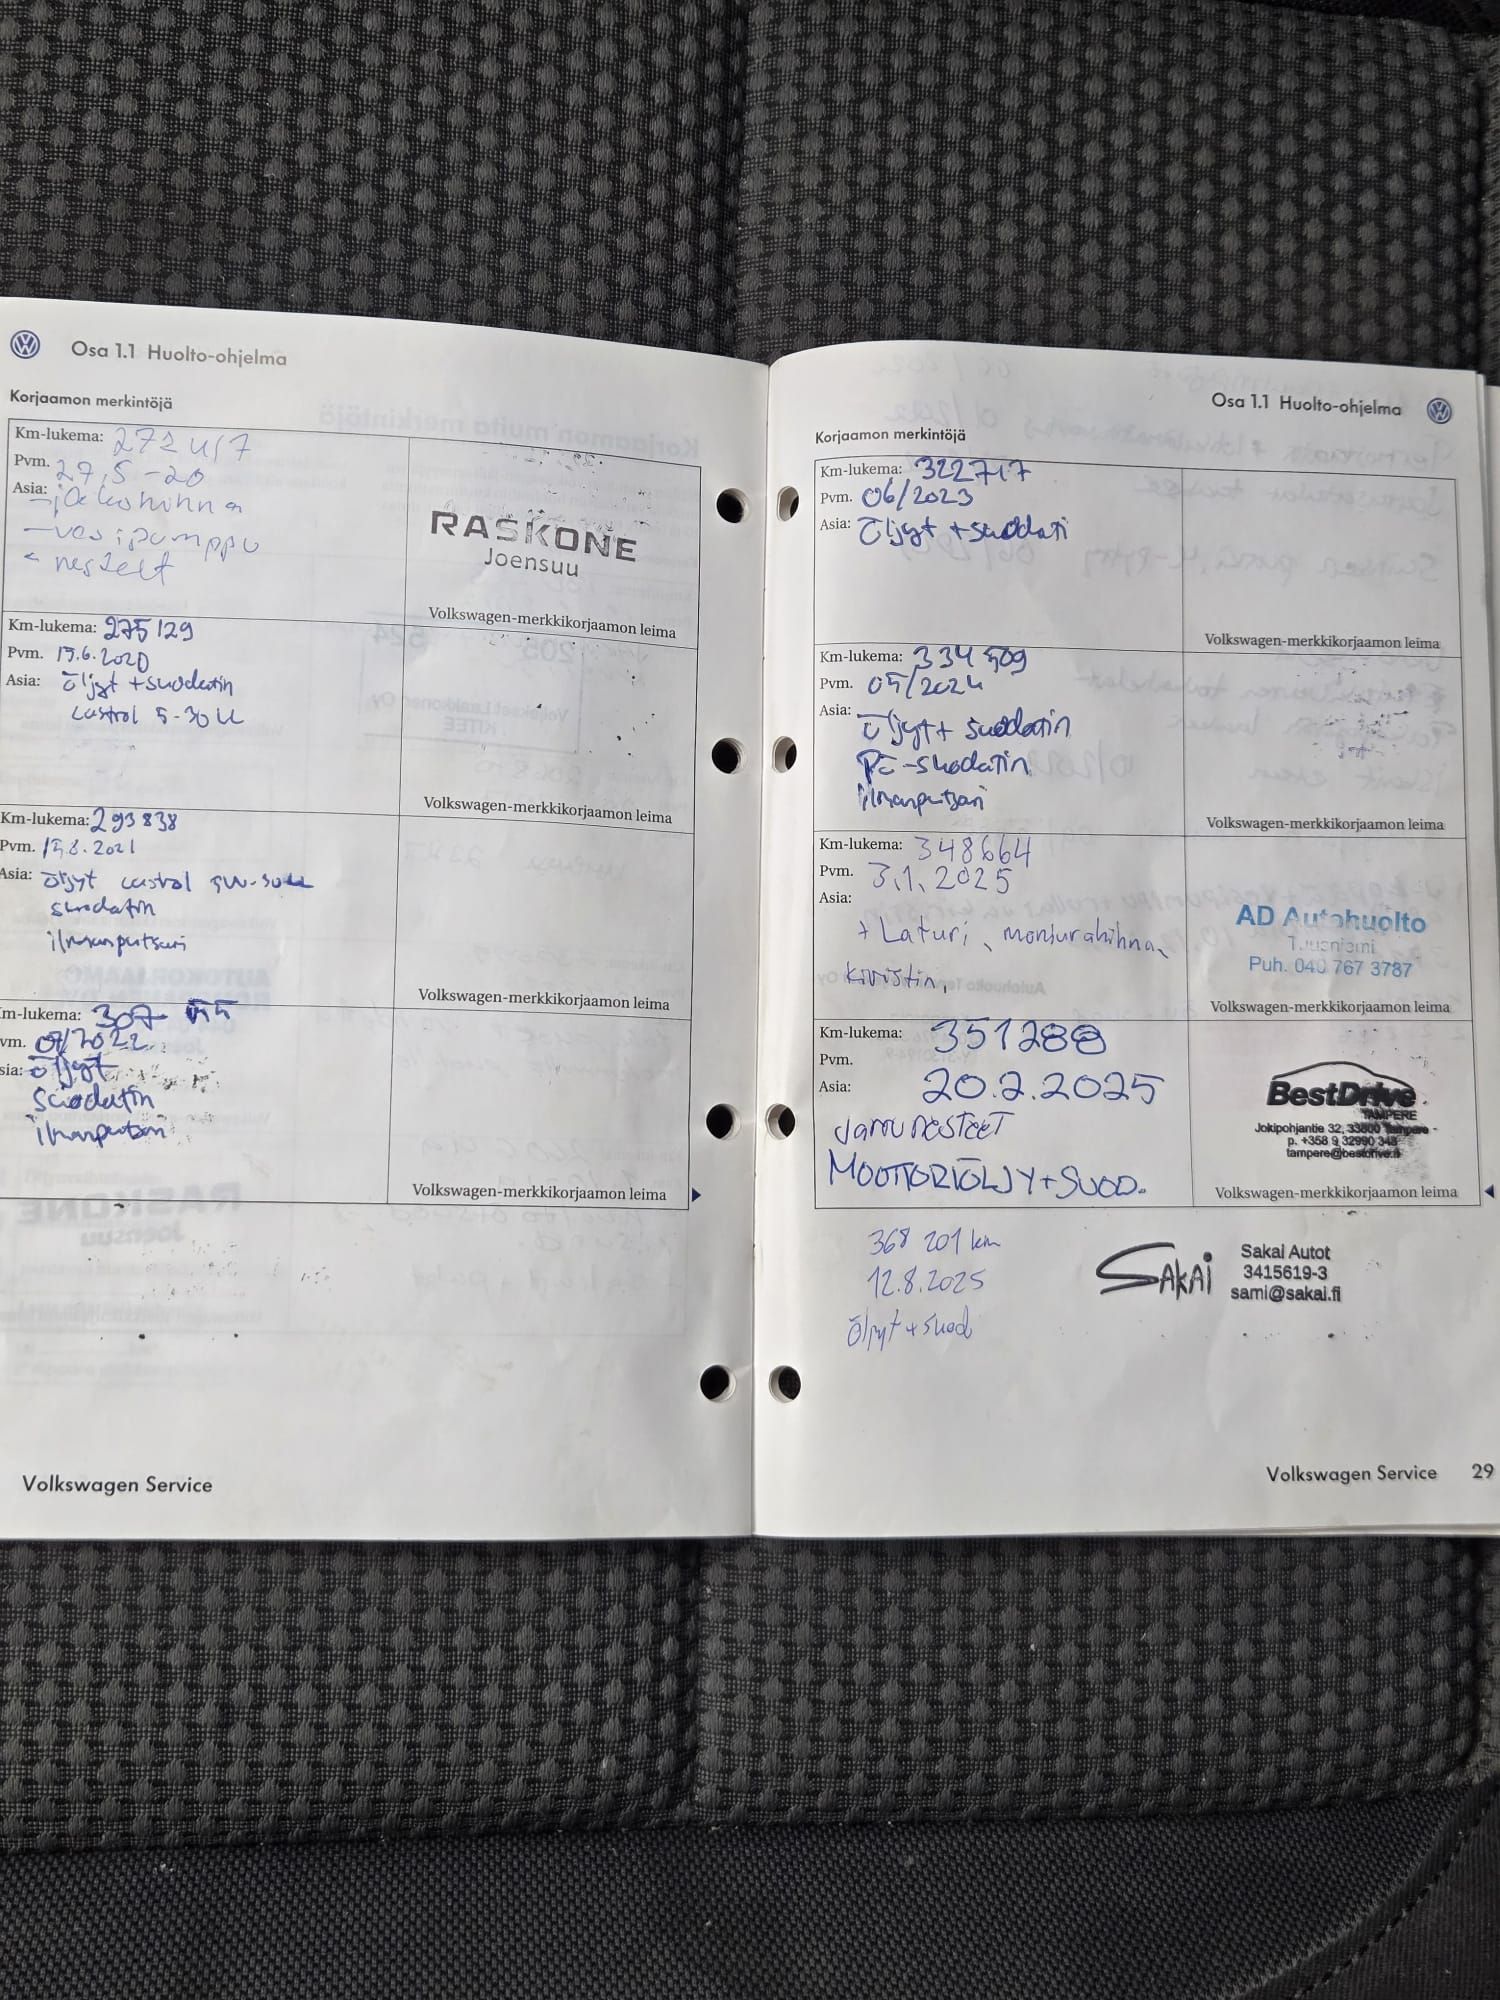 Osa 1.1 Huolto-ohjelma
Korjaamon merkintöjä
Km-lukema: 272417
Pvm. 27.5-20
Asia: - jakohihna
- vesipumppu
- nesteet
RASKONE
Joensuu
Volkswagen-merkkikorjaamon leima
Km-lukema: 275129
Pvm. 15.6.2020
Asia: Öljyt + suodatin
castrol 5-30LL
Volkswagen-merkkikorjaamon leima
Km-lukema: 293838
Pvm. 15.8.2021
Asia: Öljyt castrol 5W-30LL
suodatin
ilmanputsari
Volkswagen-merkkikorjaamon leima
m-lukema: 307
vm. 07/2022
sia: Öljyt
suodatin
ilmanputsari
Volkswagen-merkkikorjaamon leima
Volkswagen Service
Osa 1.1 Huolto-ohjelma
Korjaamon merkintöjä
Km-lukema: 322717
Pvm. 06/2023
Asia: Öljyt + suodati
Volkswagen-merkkikorjaamon leima
Km-lukema: 334509
Pvm. 05/2024
Asia: Öljyt + suodatin
Pö-suodatin
ilmanputsari
Volkswagen-merkkikorjaamon leima
Km-lukema: 348664
Pvm. 3.1.2025
Asia:
+ Laturi, moniurahihna,
kiristin,
AD Autohuolto
Puh. 040 767 3787
Volkswagen-merkkikorjaamon leima
Km-lukema: 351288
Pvm.
Asia: 20.2.2025
JARRUNESTEET
MOOTTORIÖLJY+SUOD.
BestDrive
TAMPERE
Jokipohjantie 32, 33800 Tampere
p. +358 9 32990 343
tampere@bestdrive.fi
Volkswagen-merkkikorjaamon leima
368 201 km
12.8.2025
Öljyt + suod
SAKAI
Sakai Autot
3415619-3
sami@sakai.fi
Volkswagen Service 29